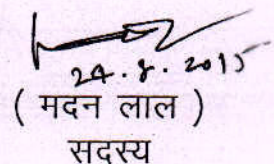 24.8.2015
( मदन लाल )
सदस्य